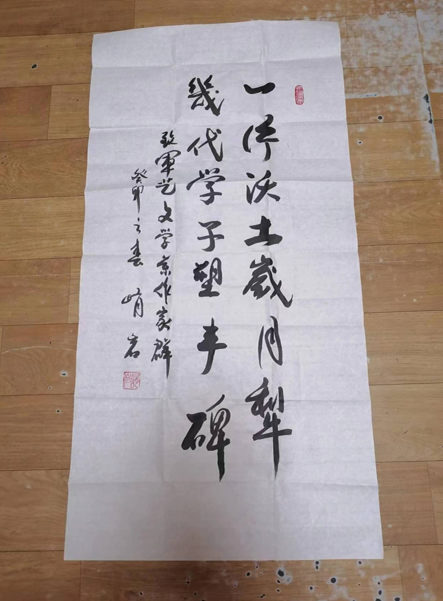 一片沃土歲月犁
幾代学子塑丰碑
致軍艺文学系作家群
癸卯之春 峭岩